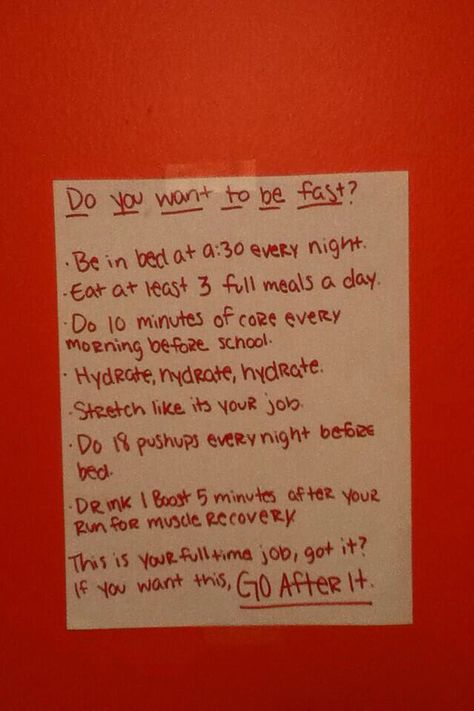 Do you want to be fast?
· Be in bed at 9:30 every night.
· Eat at least 3 full meals a day.
· Do 10 minutes of core every
morning before school.
· Hydrate, hydrate, hydrate.
· Stretch like its your job.
· Do 18 pushups every night before
bed.
· Drink 1 Boost 5 minutes after your
run for muscle recovery
This is your full time job, got it?
If you want this, GO After It.